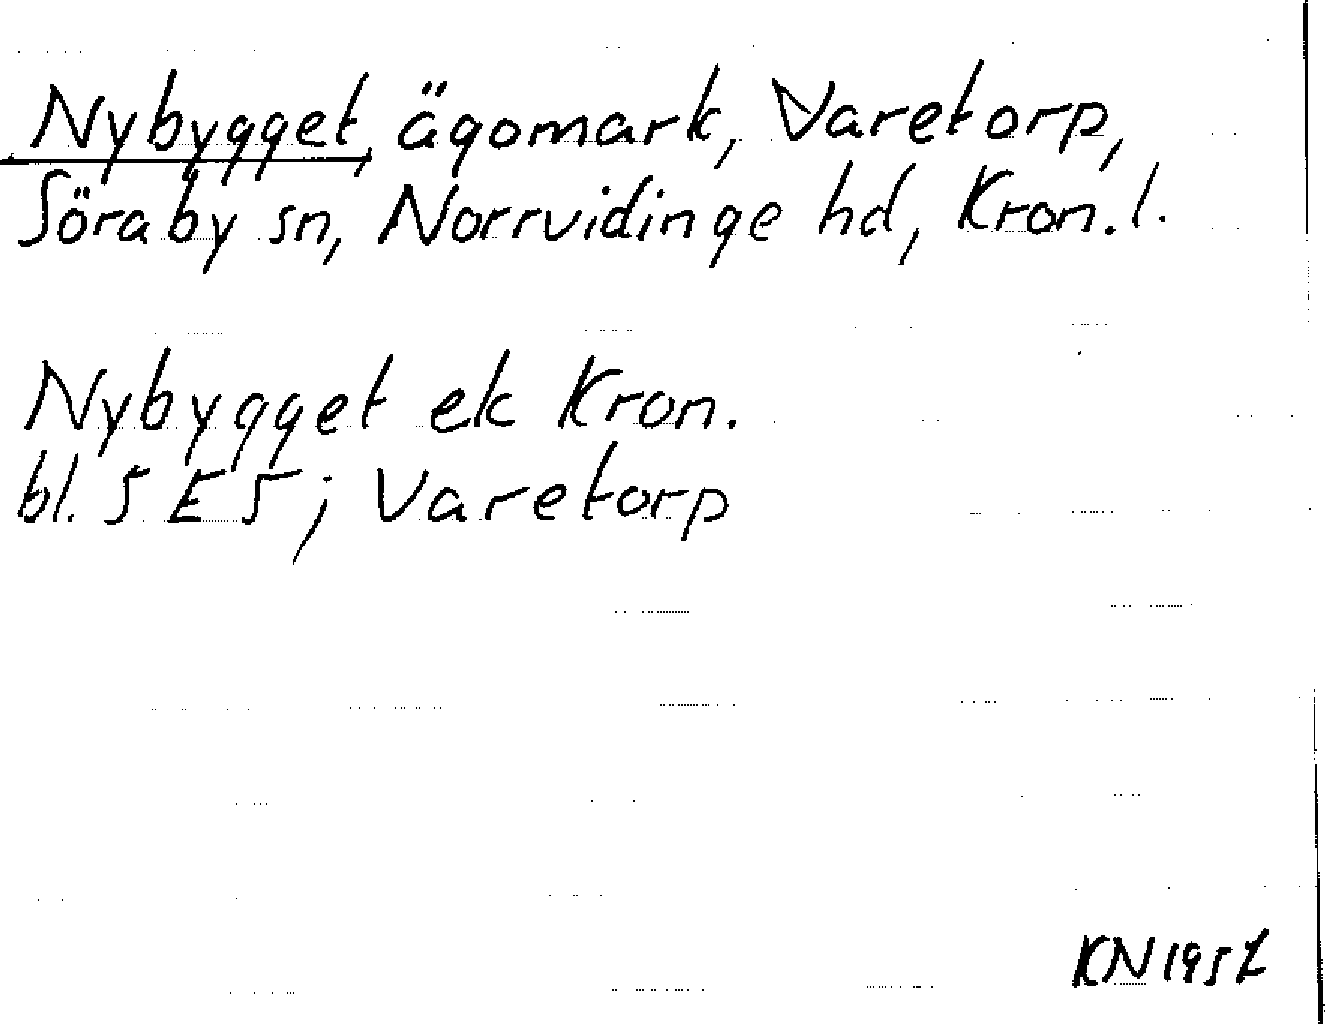 Nybygget, ägomark, Varetorp,
Söraby sn, Norrvidinge hd, Kron. l.
Nybygget ek Kron.
bl. 5 E 5; Varetorp
KN 1957